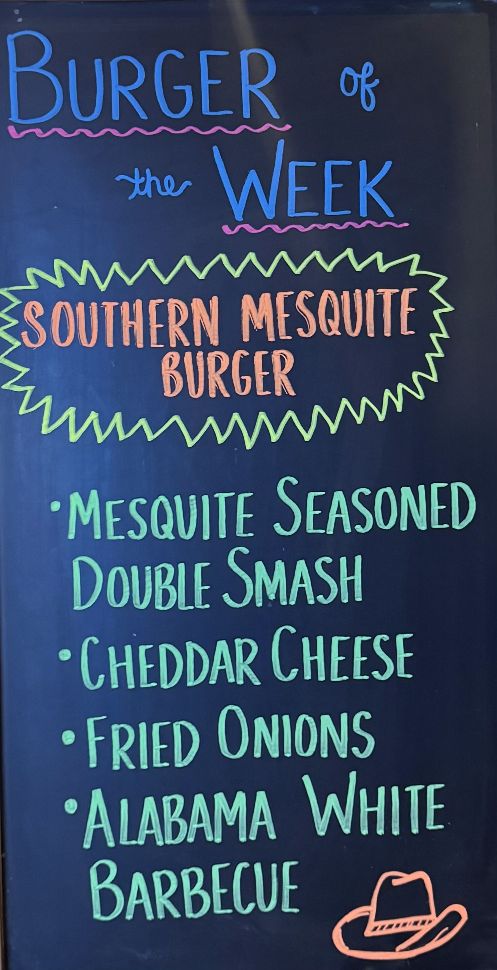 BURGER of
the WEEK
SOUTHERN MESQUITE
BURGER
• MESQUITE SEASONED
DOUBLE SMASH
• CHEDDAR CHEESE
• FRIED ONIONS
• ALABAMA WHITE
BARBECUE